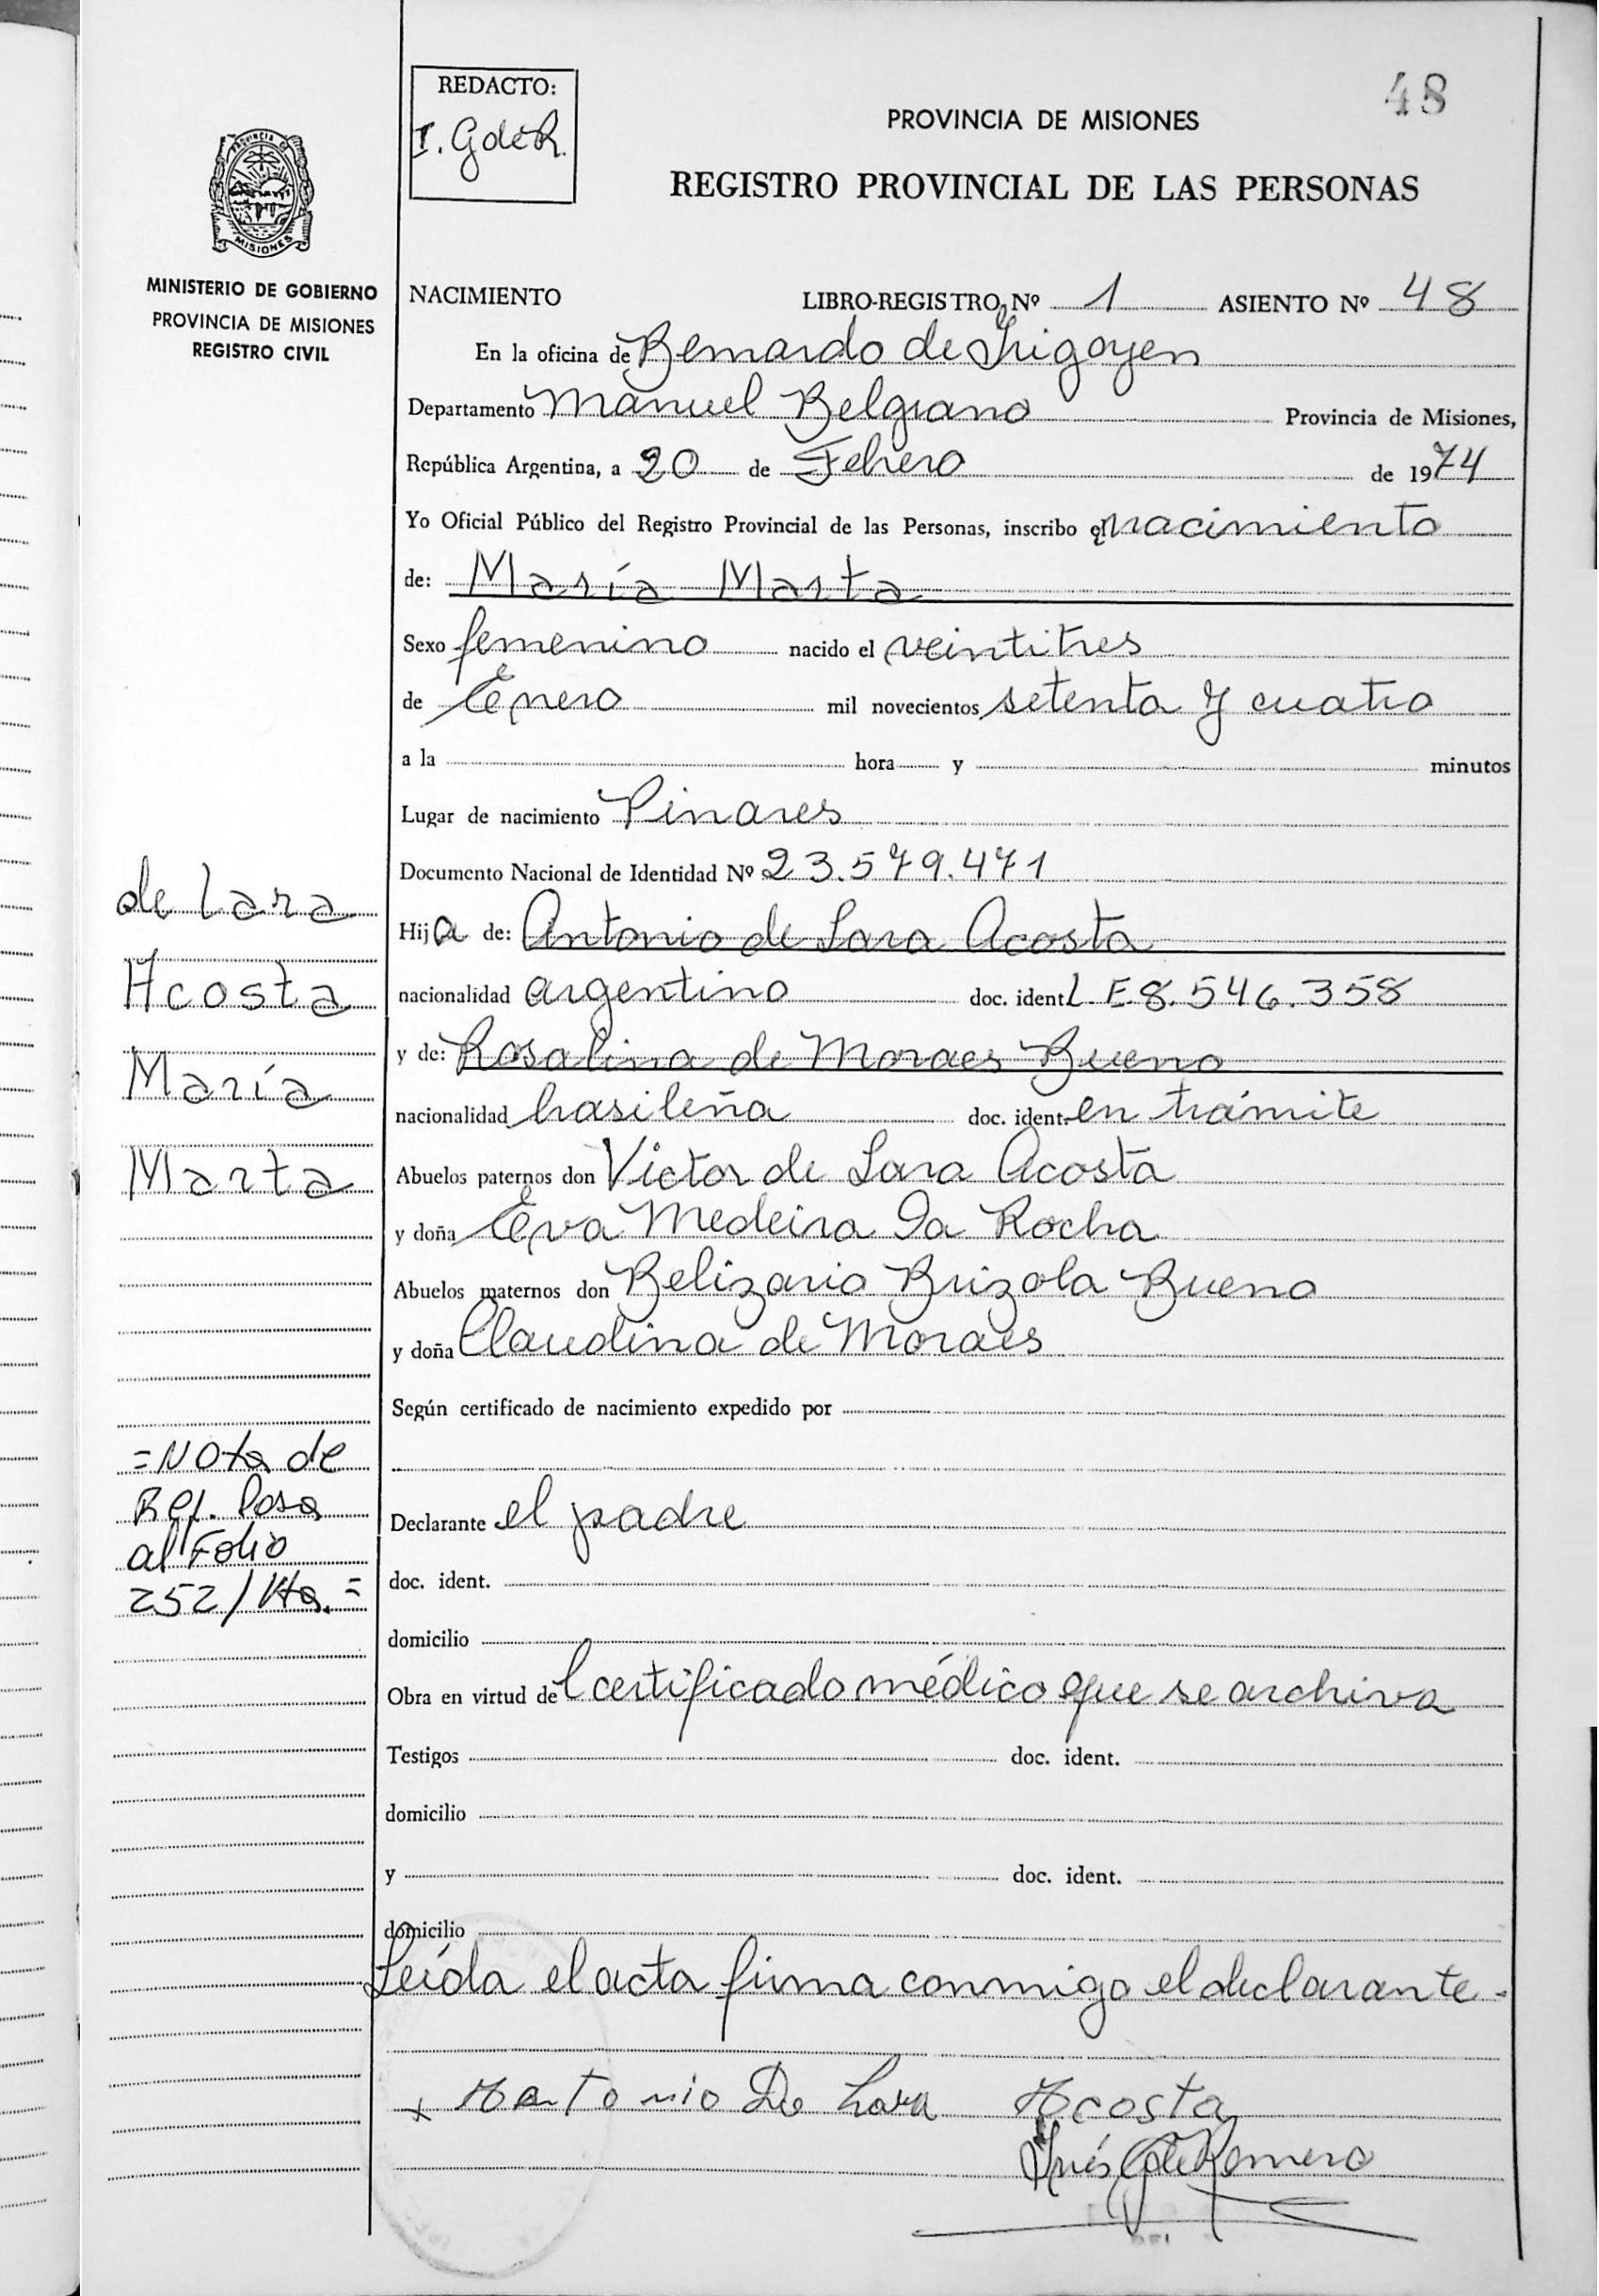 48
REDACTO:
I. G de R.
PROVINCIA DE MISIONES
REGISTRO PROVINCIAL DE LAS PERSONAS
PROVINCIA DE
MISIONES
MINISTERIO DE GOBIERNO
PROVINCIA DE MISIONES
REGISTRO CIVIL
NACIMIENTO LIBRO-REGISTRO Nº 1 ASIENTO Nº 48
En la oficina de Bernardo de Irigoyen
Departamento Manuel Belgrano Provincia de Misiones,
República Argentina, a 20 de Febrero de 1974
Yo Oficial Público del Registro Provincial de las Personas, inscribo el nacimiento
de: María Marta
Sexo femenino nacido el veintitres
de Enero mil novecientos setenta y cuatro
a la hora y minutos
Lugar de nacimiento Pinares
Documento Nacional de Identidad Nº 23.579.471
Hija de: Antonio de Lara Acosta
nacionalidad argentino doc. ident. L.E. 8.546.358
y de: Rosalina de Moraes Bueno
nacionalidad brasileña doc. ident. en trámite
Abuelos paternos don Victor de Lara Acosta
y doña Eva Medeira Da Rocha
Abuelos maternos don Belizario Brizola Bueno
y doña Claudina de Moraes
Según certificado de nacimiento expedido por
Declarante el padre
doc. ident.
domicilio
Obra en virtud del certificado médico que se archiva
Testigos doc. ident.
domicilio
y doc. ident.
domicilio
Leída el acta firma conmigo el declarante.-
x Antonio De Lara Acosta
Inés G de Romero
de Lara
Acosta
María
Marta
=Nota de
Ref. Pasa
al Folio
252/Vta.=